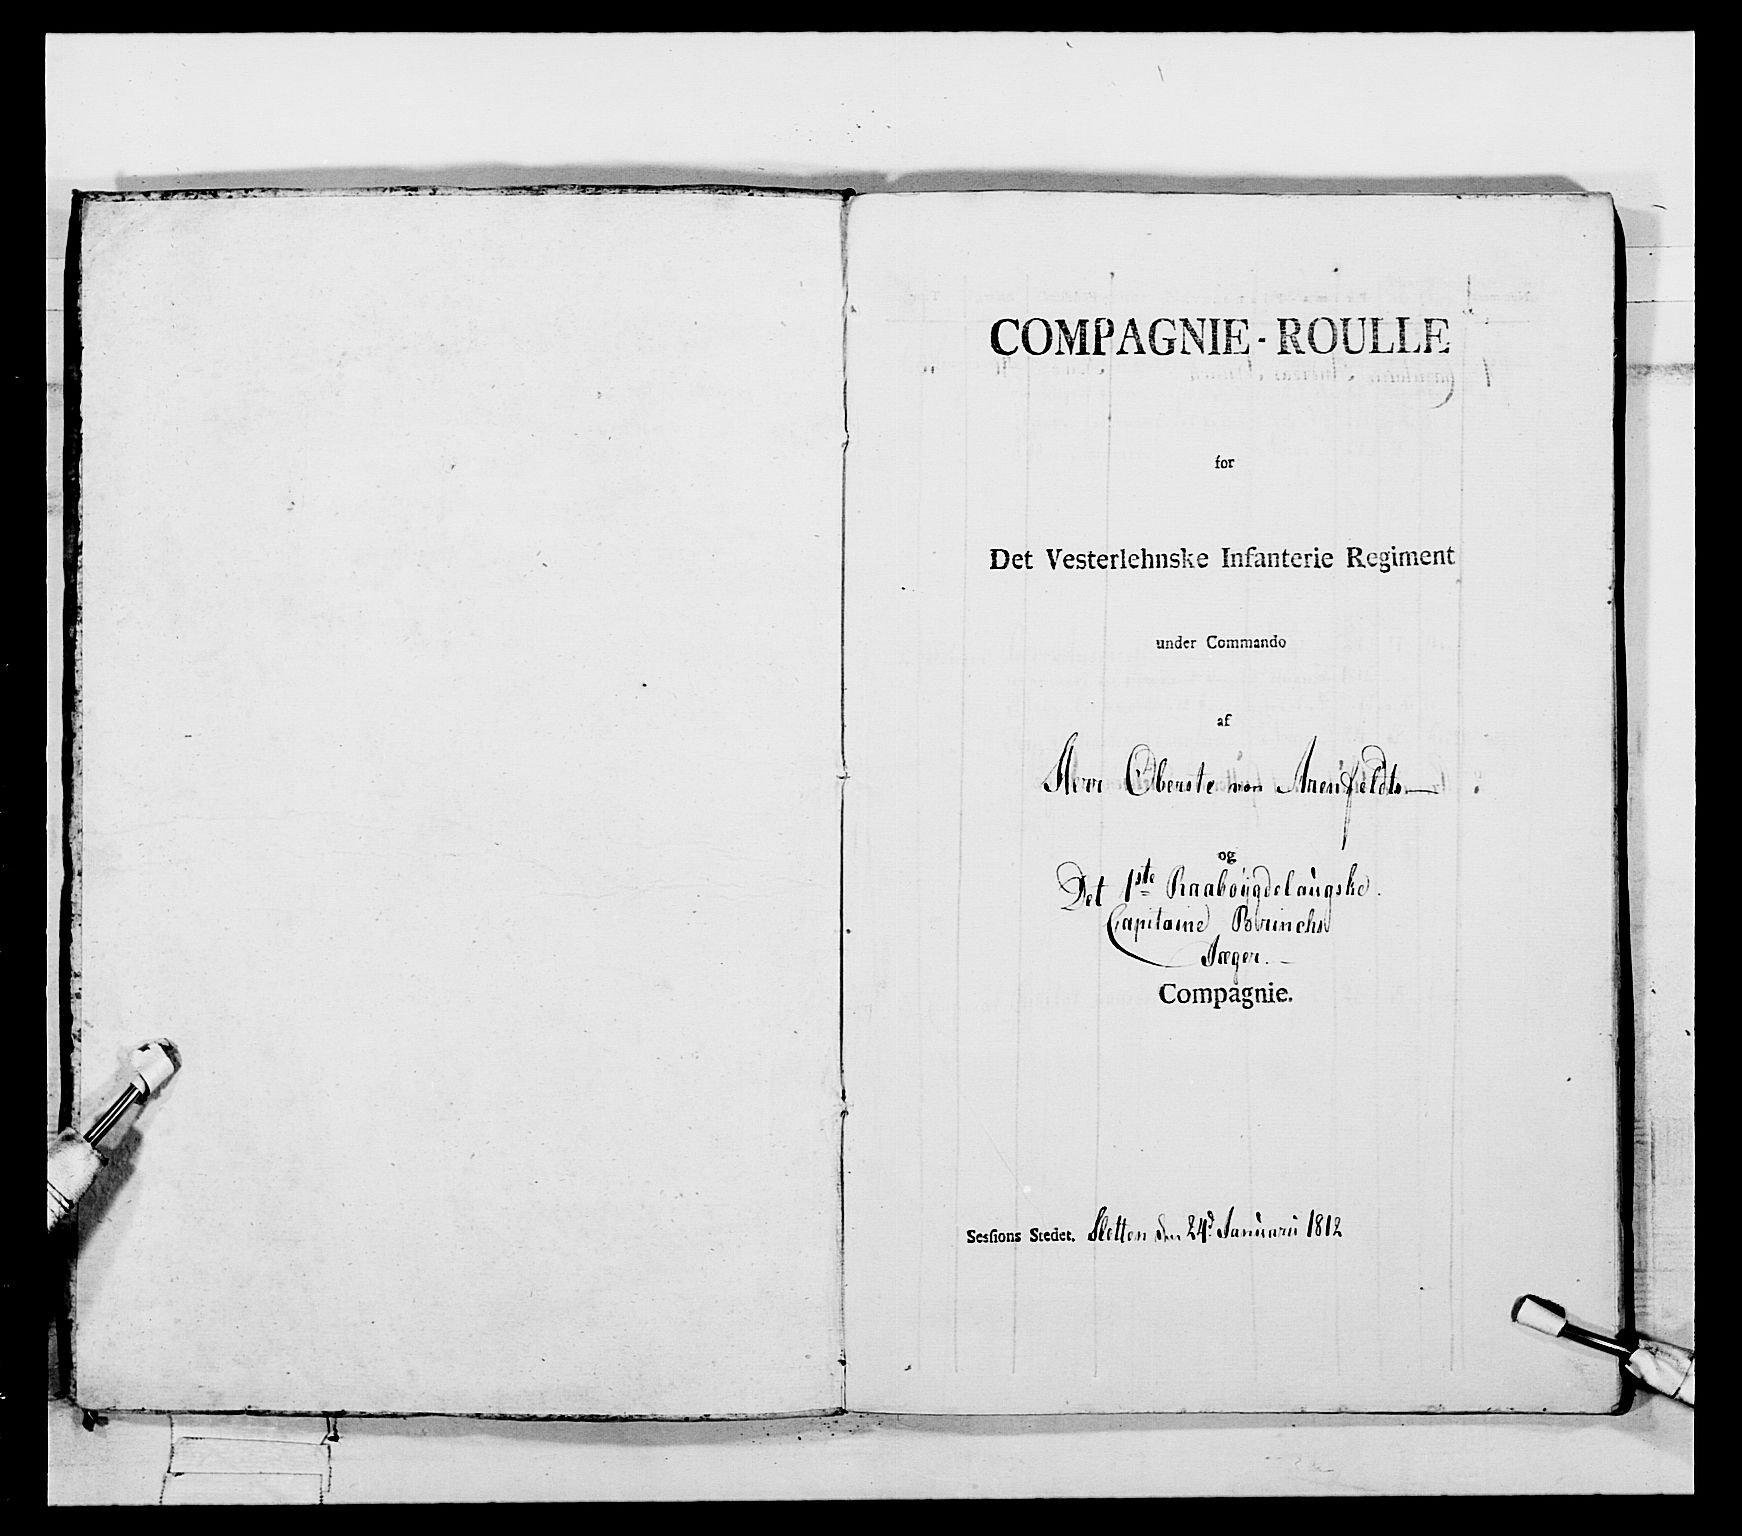 COMPAGNIE-ROULLE
for
Det Vesterlehnske Infanterie Regiment
under Commando
af
Herr Oberste von Arenfeldts
og
Det 1ste Raaboÿgdelaugske.
Capitaine Brinchs
Jæger.
Compagnie.
Sesſions Stedet. Sletten den 24d. Januarii 1812